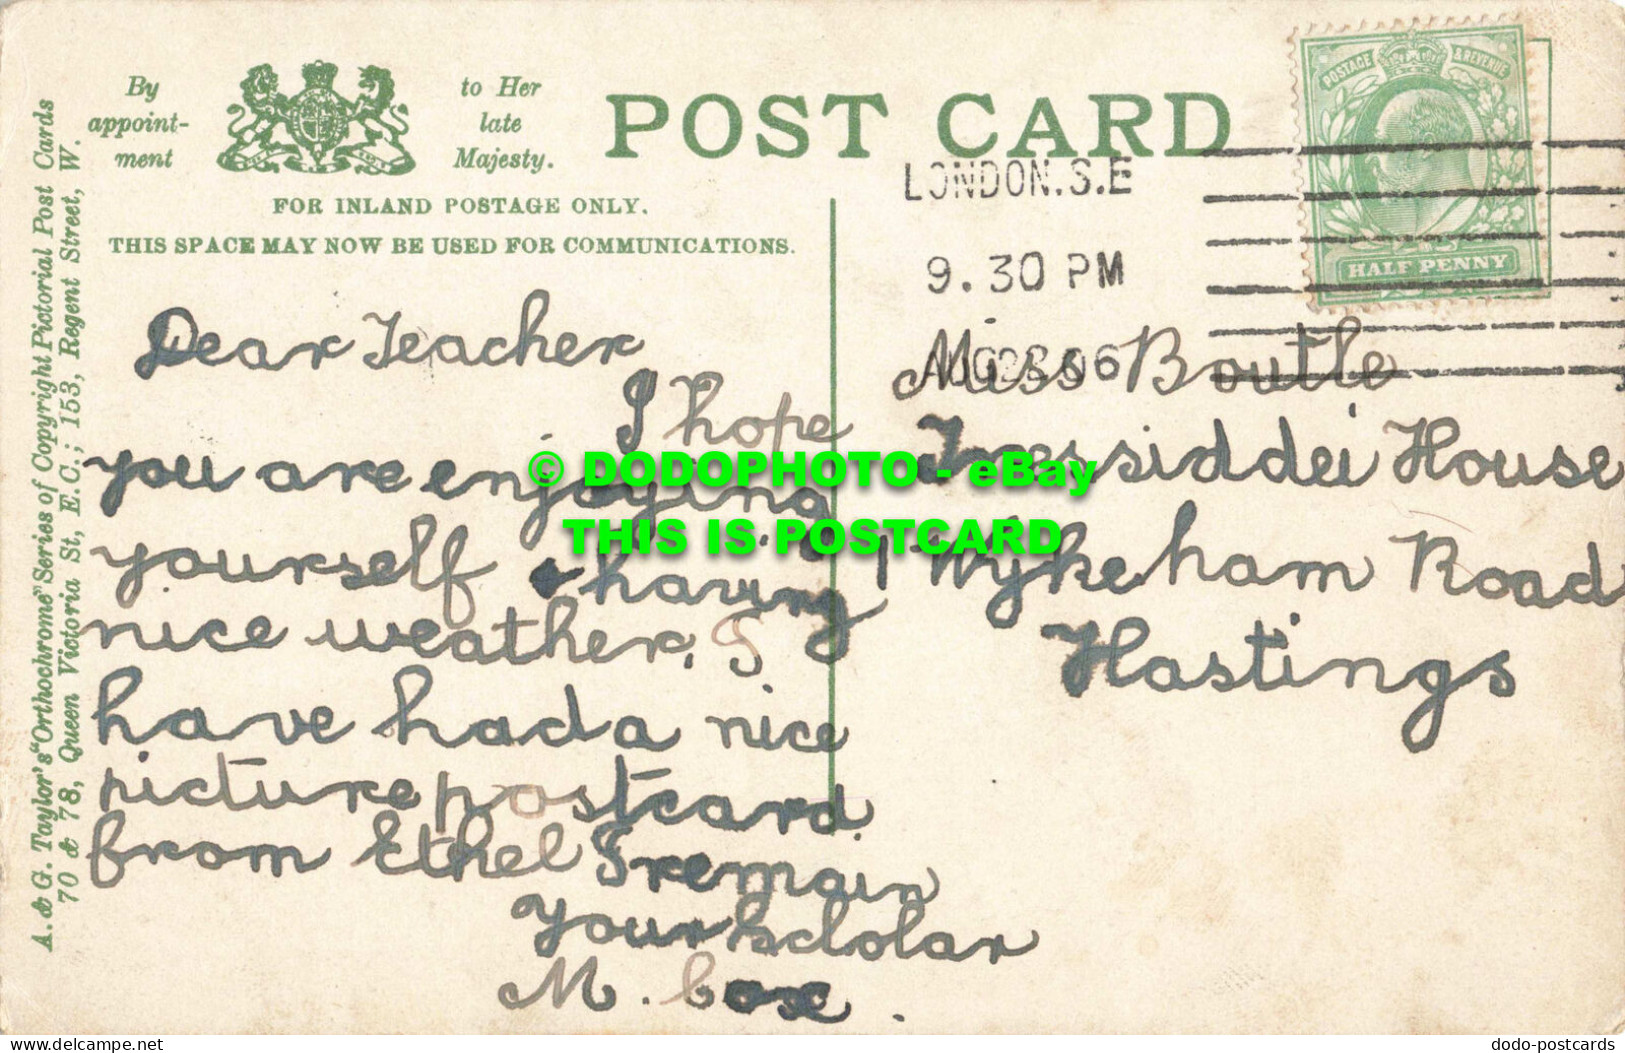 By appoint-ment
to Her late Majesty.
POST CARD
FOR INLAND POSTAGE ONLY.
THIS SPACE MAY NOW BE USED FOR COMMUNICATIONS.
A. & G. Taylor's "Orthochrome" Series of Copyright Pictorial Post Cards
70 & 78, Queen Victoria St, E.C.; 153, Regent Street, W.
POSTAGE & REVENUE
HALF PENNY
LONDON. S.E
9.30 PM
AUG 06
Dear Teacher
I hope
you are enjoying
yourself & having
nice weather. I
have had a nice
picture postcard
from Ethel Tremain
Your scholar
M. Cox.
Miss Boutle
House
1 Wykeham Road
Hastings
© DODOPHOTO - eBay
THIS IS POSTCARD
Delcampe.net
dodo-postcards